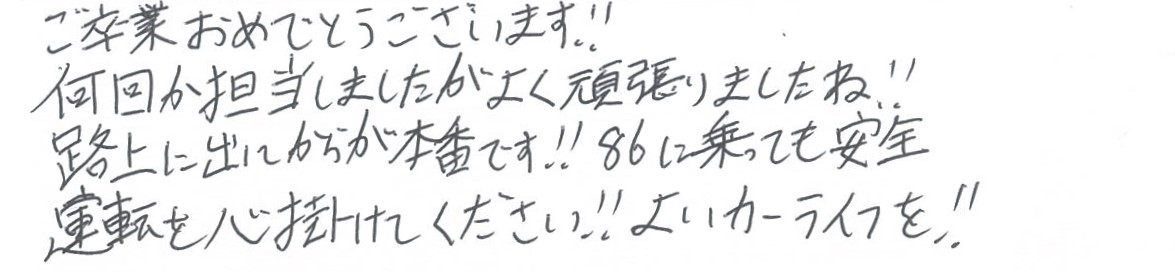 ご卒業おめでとうございます!!
何回か担当しましたがよく頑張りましたね!!
路上に出てからが本番です!! 86に乗っても安全
運転を心掛けてください!! よいカーライフを!!